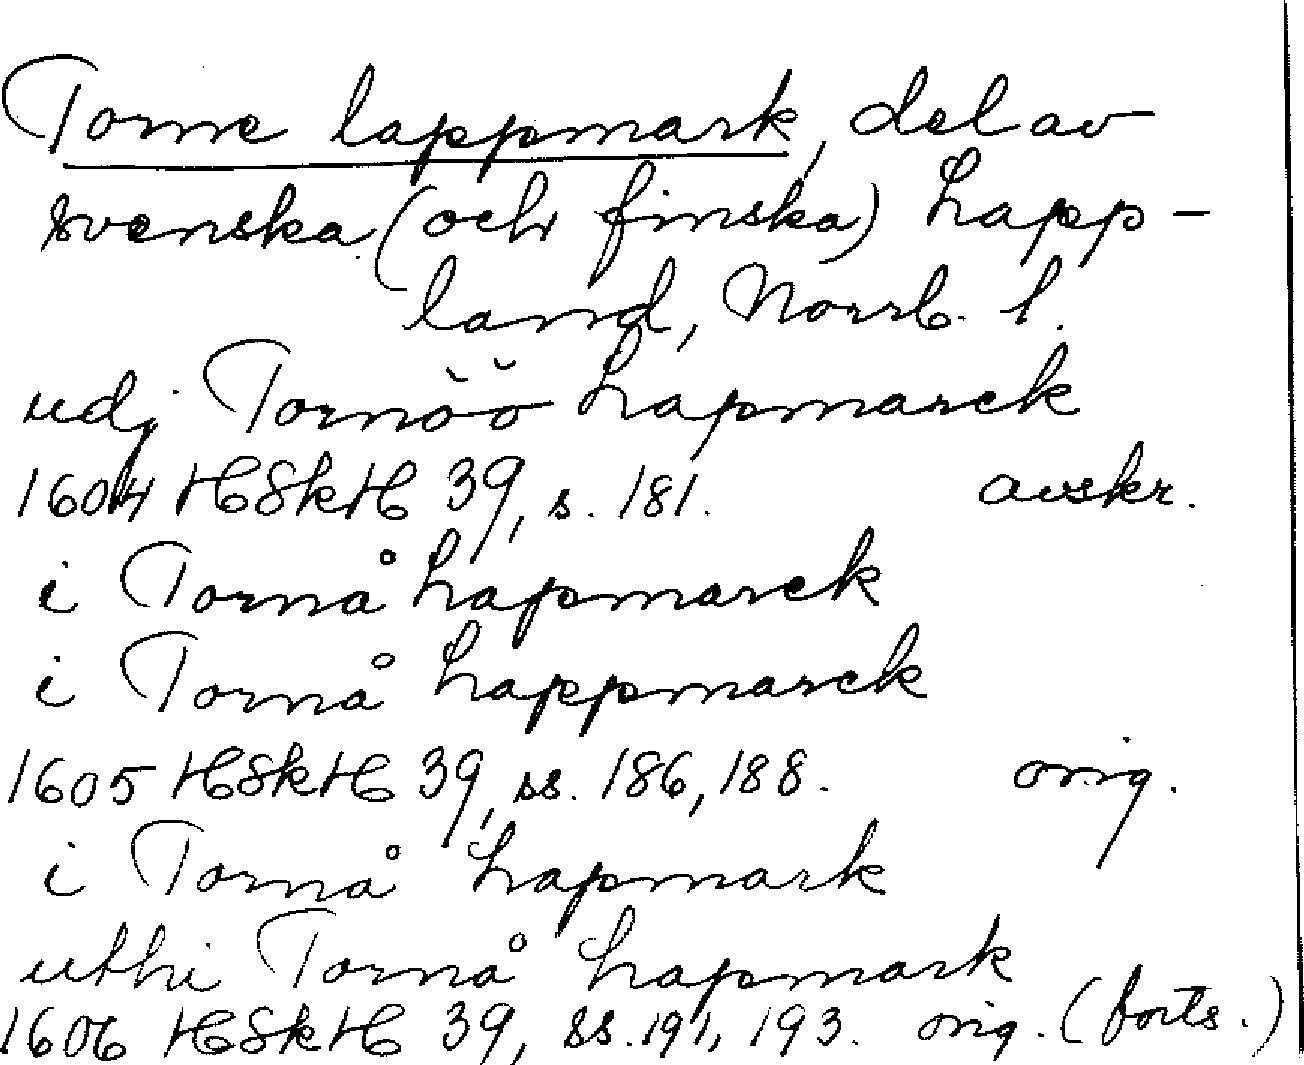 Torne lappmark, del av
svenska (och finska) Lapp-
land, Norrb. l.
udj Tornöö Lapmarck
1604 HSkH 39, s. 181. avskr.
i Tornå Lapmarck
i Tornå Lappmarck
1605 HSkH 39, ss. 186, 188. orig.
i Tornå Lapmark
uthi Tornå Lapmark
1606 HSkH 39, ss. 191, 193. orig. (forts.)